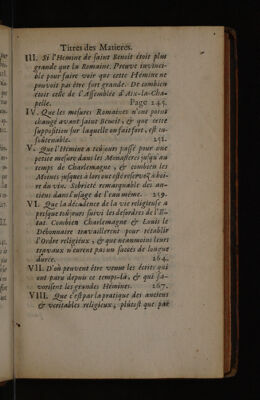 Titres des Matieres.
III. Si l'Hemine de saint Benoit étoit plus
grande que la Romaine. Preuve invinci-
ble pour faire voir que cette Hemine ne
pouvoit pas être fort grande. De combien
étoit celle de l'Assemblée d'Aix-la-Cha-
pelle. Page 245.
IV. Que les mesures Romaines n'ont point
changé avant saint Benoît, & que cette
supposition sur laquelle on fait fort, est in-
soûtenable. 251.
V. Que l'Hemine a toûjours passé pour une
petite mesure dans les Monasteres jusqu'au
temps de Charlemagne, & combien les
Moines jusques à lors ont esté reservez à boi-
re du vin. Sobrieté remarquable des an-
ciens dans l'usage de l'eau même. 259.
VI. Que la décadence de la vie religieuse a
presque toûjours suivi les desordres de l'E-
tat. Combien Charlemagne & Louis le
Débonnaire travaillerent pour rétablir
l'Ordre religieux, & que neanmoins leurs
travaux n'eurent pas un succés de longue
durée. 264.
VII. D'où peuvent être venus les écrits qui
ont paru depuis ce temps-là, & qui fa-
vorisent les grandes Hemines. 267.
VIII. Que c'est par la pratique des anciens
& veritables religieux, plûtost que par